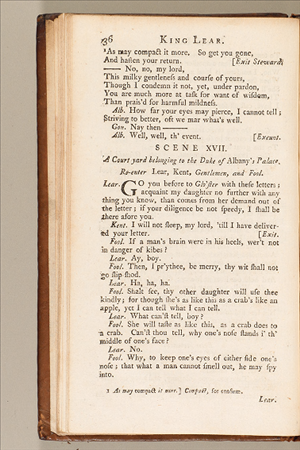 36 KING LEAR.
¹As may compact it more. So get you gone,
And haſten your return. [Exit Steward.
—— No, no, my lord,
This milky gentleneſs and courſe of yours,
Though I condemn it not, yet, under pardon,
You are much more at taſk for want of wiſdom,
Than prais'd for harmful mildneſs.
Alb. How far your eyes may pierce, I cannot tell;
Striving to better, oft we mar what's well.
Gon. Nay then ——
Alb. Well, well, th' event. [Exeunt.
SCENE XVII.
A Court yard belonging to the Duke of Albany's Palace.
Re-enter Lear, Kent, Gentlemen, and Fool.
Lear. GO you before to Glo'ſter with theſe letters;
acquaint my daughter no further with any
thing you know, than comes from her demand out of
the letter; if your diligence be not ſpeedy, I ſhall be
there afore you.
Kent. I will not ſleep, my lord, 'till I have deliver-
ed your letter. [Exit.
Fool. If a man's brain were in his heels, wer't not
in danger of kibes?
Lear. Ay, boy.
Fool. Then, I pr'ythee, be merry, thy wit ſhall not
go ſlip ſhod.
Lear. Ha, ha, ha.
Fool. Shalt ſee, thy other daughter will uſe thee
kindly; for though ſhe's as like this as a crab's like an
apple, yet I can tell what I can tell.
Lear. What can'ſt tell, boy?
Fool. She will taſte as like this, as a crab does to
a crab. Can'ſt thou tell, why one's noſe ſtands i' th'
middle of one's face?
Lear. No.
Fool. Why, to keep one's eyes of either ſide one's
noſe; that what a man cannot ſmell out, he may ſpy
into.
1 As may compact it more.] Compact, for confirm.
Lear.